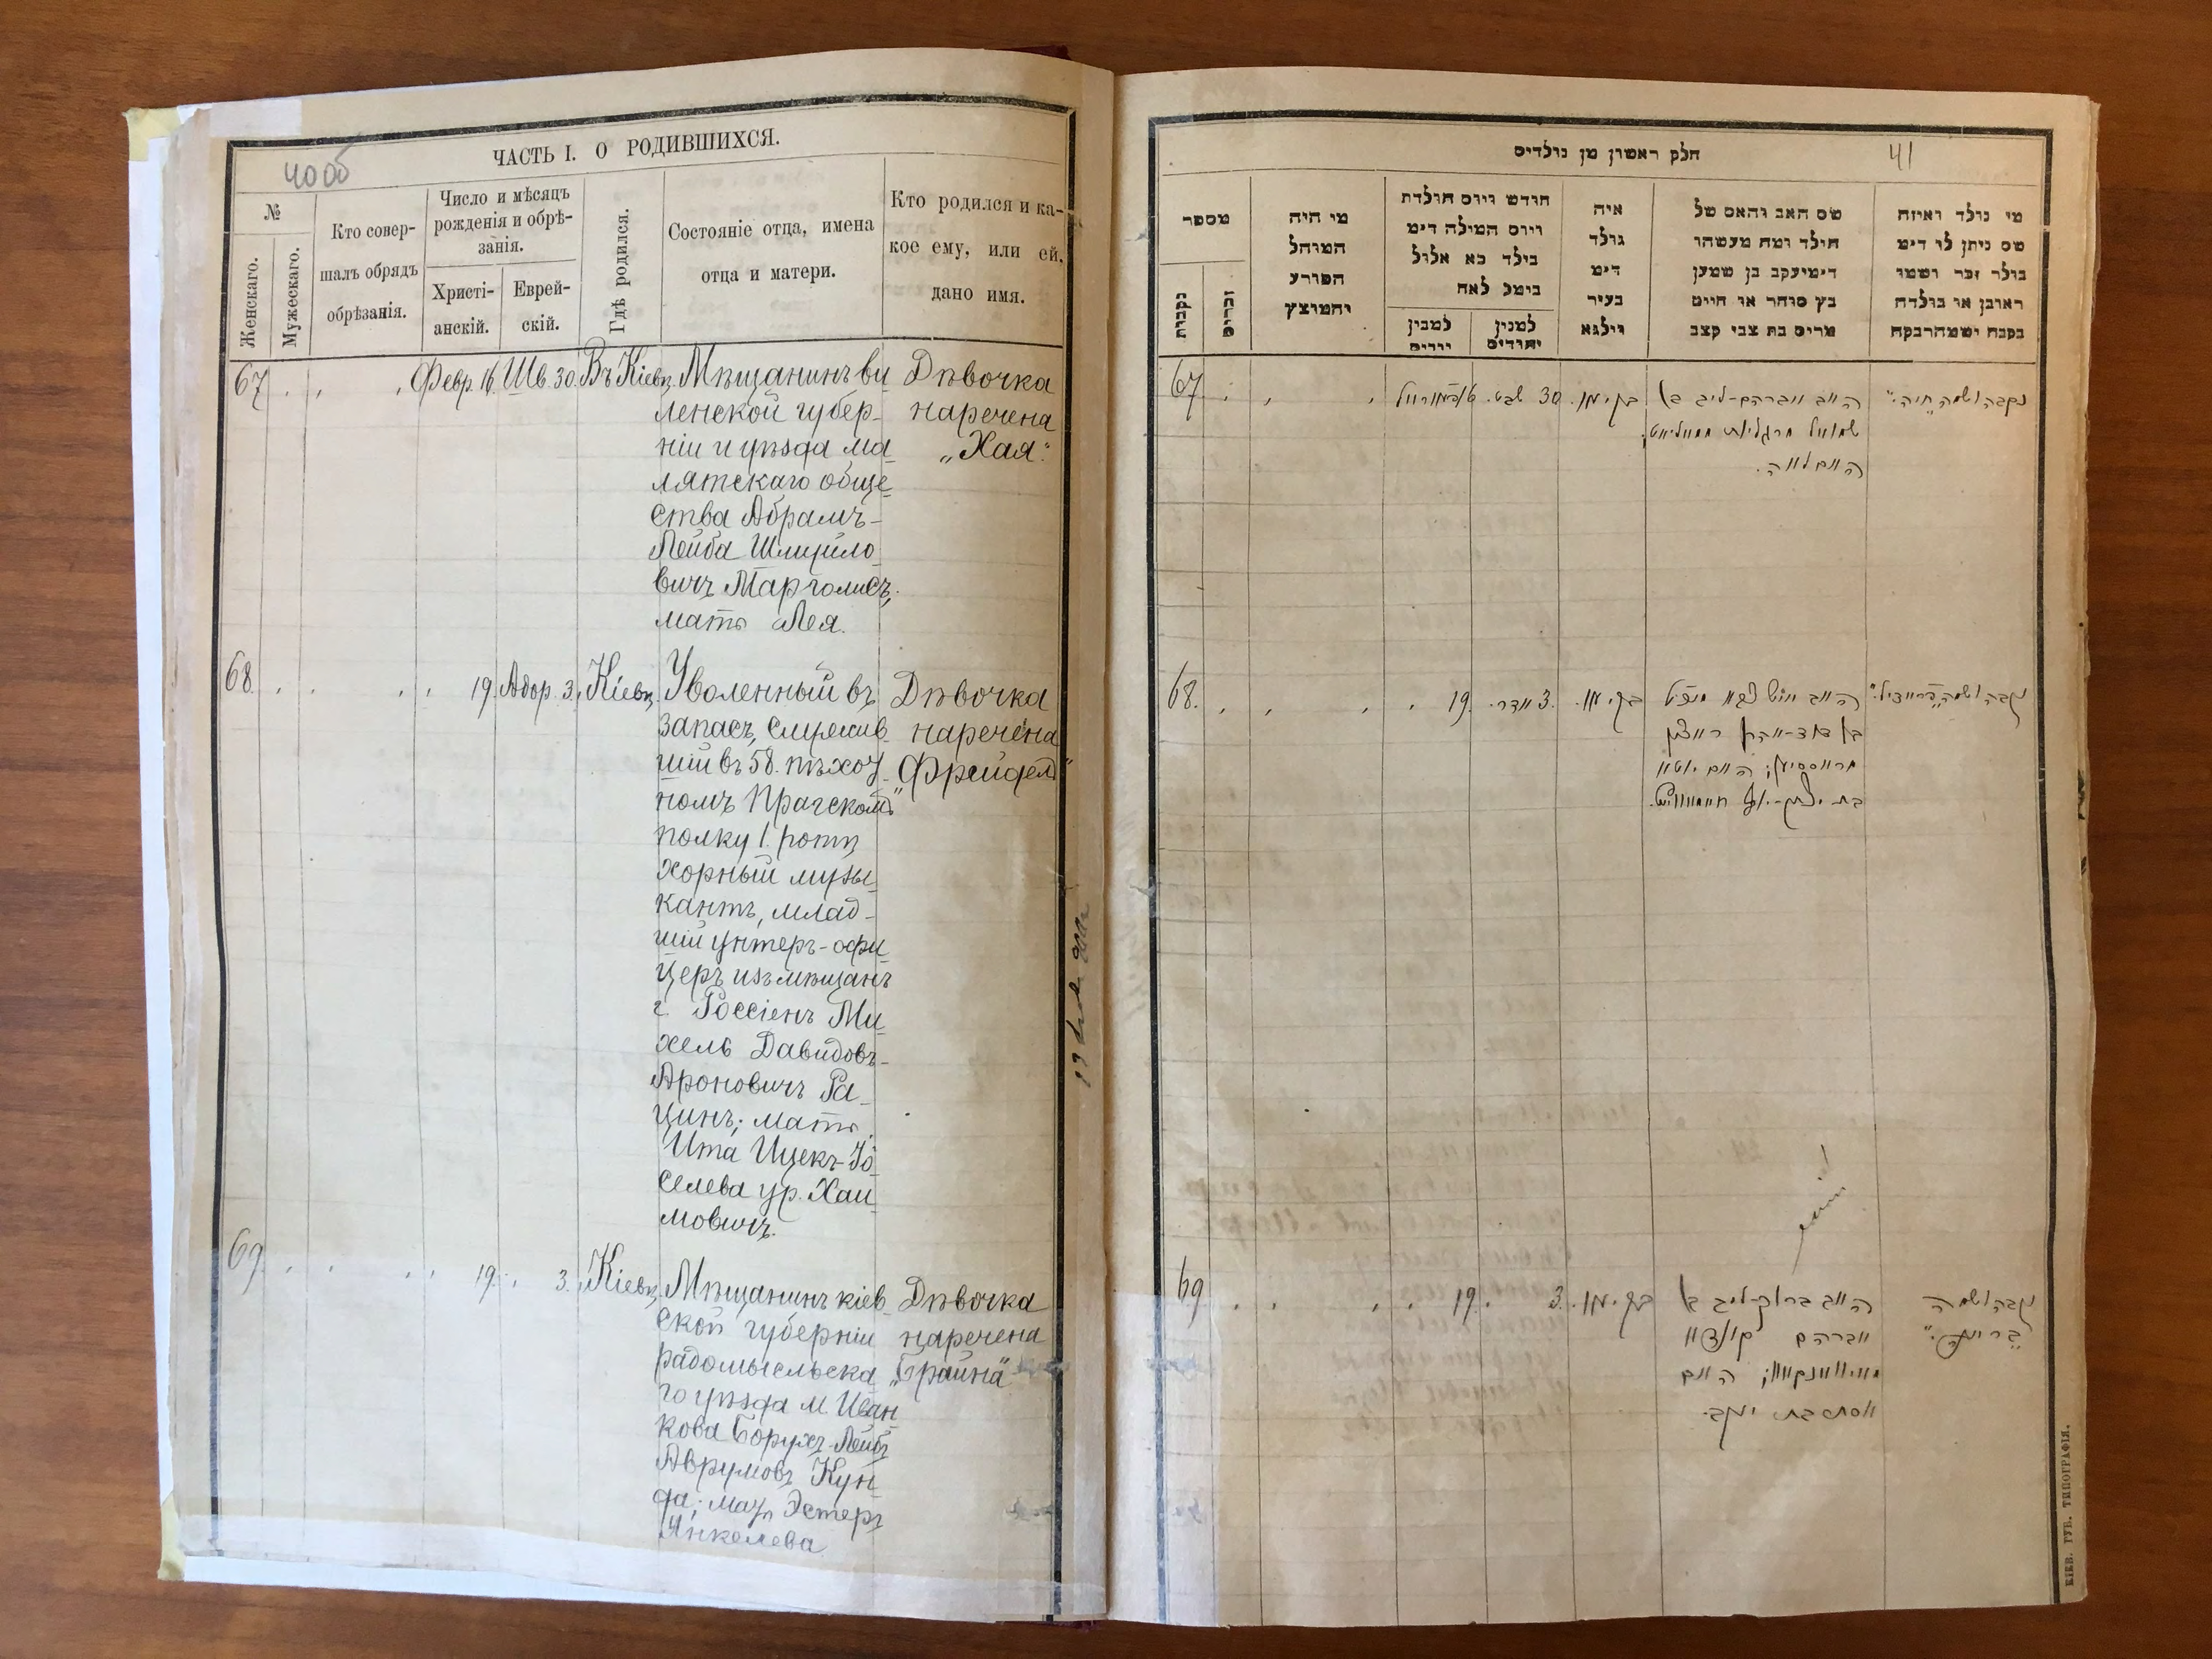 ЧАСТЬ I. О РОДИВШИХСЯ.
40об
№
Женскаго.
Мужескаго.
Кто совер-
шалъ обрядъ
обрѣзанія.
Число и мѣсяцъ
рожденія и обрѣ-
занія.
Христі-
анскій.
Еврей-
скій.
Гдѣ родился.
Состояніе отца, имена
отца и матери.
Кто родился и ка-
кое ему, или ей,
дано имя.
67 Февр. 16. Шв. 30. Въ Кіевѣ.
Мѣщанинъ ви
ленской губер-
ніи и уѣзда ма
лятскаго обще
ства Абрамъ-
Лейба Шмуйло
вичъ Марголисъ,
мать Лея.
Дѣвочка
наречена
„Хая“
68. 19. Адор. 3. Кіевѣ.
Уволенный въ
запасъ, служив
шій въ 58. пѣхот
номъ Прагскомъ
полку 1. ротѣ
хорный музы
кантъ, млад-
шій унтеръ-офи
церъ изъ мѣщанъ
г. Россіенъ Ми
хель Давидовъ-
Ароновичъ Ра
цинъ; мать
Ита Ицекъ-Іо
селева ур. Хаи
мовичъ.
Дѣвочка
наречена
„Фрейдель“
69. 19. 3. Кіевѣ.
Мѣщанинъ кіев
ской губерніи
радомысльска
го уѣзда м. Иван
кова Борухъ-Лейбъ
Аврумовъ Кун-
да; мать Эстеръ
Янкелева
Дѣвочка
наречена
„Брайна“
חלק ראשון מן נולדים
41
מספר
נקבות
זכרים
מי היה
המוהל
הפורע
והמוצץ
חודש ויום הולדת
ויום המילה דימ
בילד כא אלול
בימל לאח
למנין
יהודים
איה
נולד
דימ
בעיר
ווילנא
שם האב והאם של
הילד ומה מעשהו
דימ יעקב בן שמען
בץ סוחר או חייט
מרים בת צבי קצב
מי נולד ואיזה
שם ניתן לו דימ
נולד זכר ושמו
ראובן או נולדה
נקבה ושמה רבקה
67 30 שבט.
האב אברהם-ליב בן
שמואל מרגליות
האם לאה.
נקבה ושמה „חיה“.
68. 19. 3 אדר.
בן דוד-אהרן
נקבה ושמה „פריידיל“.
69 19. 3.
האב ברוך-ליב בן
אברהם קונדא
האם
אסתר בת יעקב.
נקבה ושמה
„בריינה“.
КІЕВ. ГУБ. ТИПОГРАФІЯ.